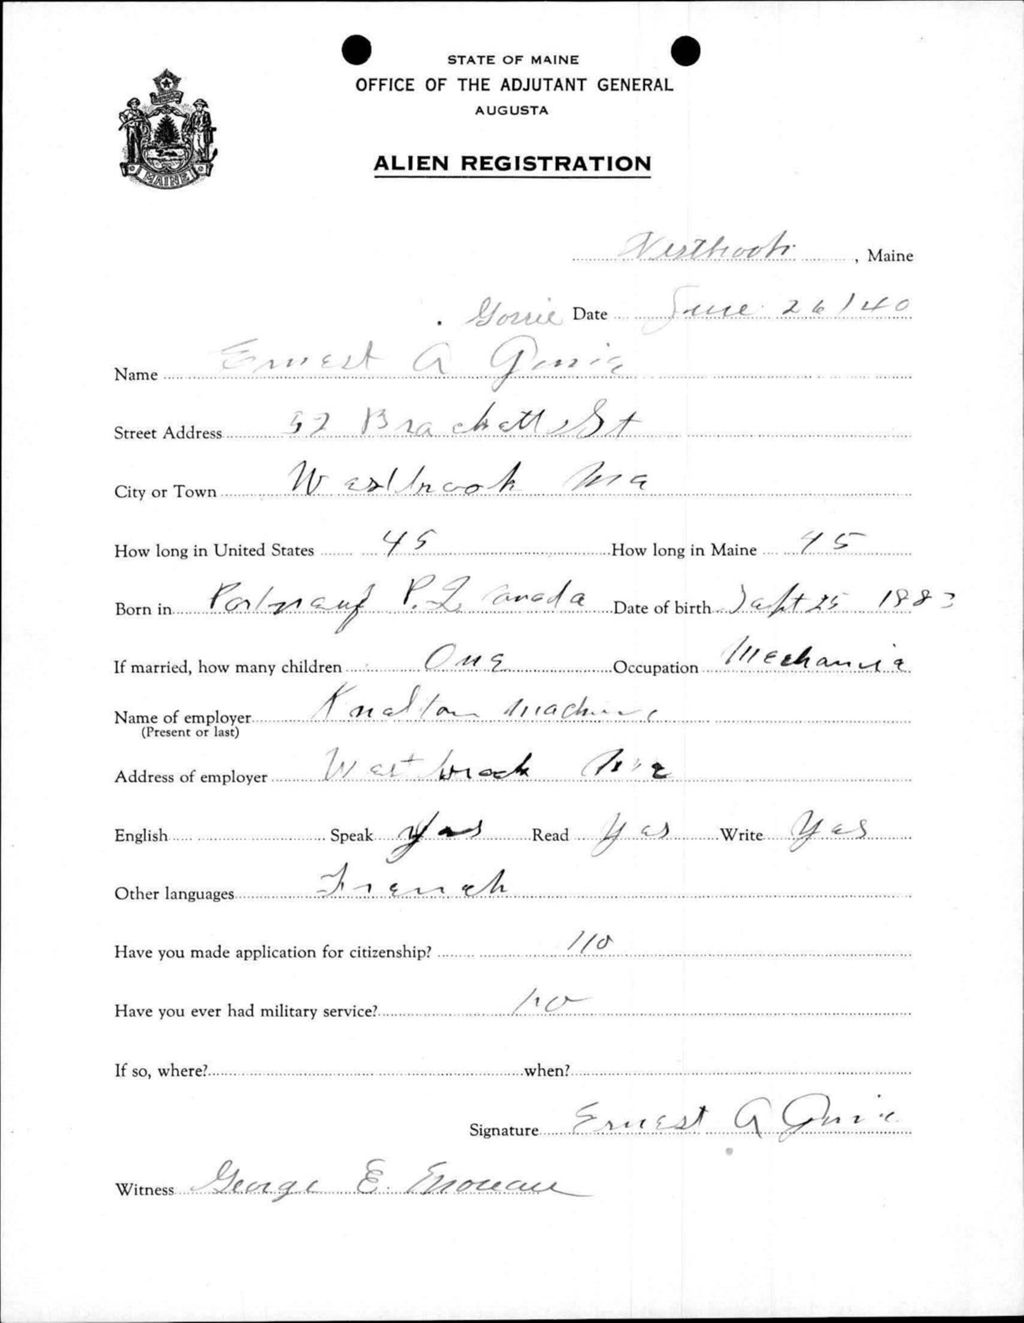 STATE OF MAINE
OFFICE OF THE ADJUTANT GENERAL
AUGUSTA
MAINE
ALIEN REGISTRATION
Westbrook, Maine
Gorrie Date June 26/40
Name Ernest A Gorrie
Street Address 52 Brackett St
City or Town Westbrook Me
How long in United States 45 How long in Maine 45
Born in Portneuf P.Q Canada Date of birth Sept 25 1883
If married, how many children One Occupation Mechanic
Name of employer Knowlton Machine
(Present or last)
Address of employer Westbrook Me
English Speak Yes Read Yes Write Yes
Other languages French
Have you made application for citizenship? No
Have you ever had military service? no
If so, where? when?
Signature Ernest A Gorrie
Witness George E.